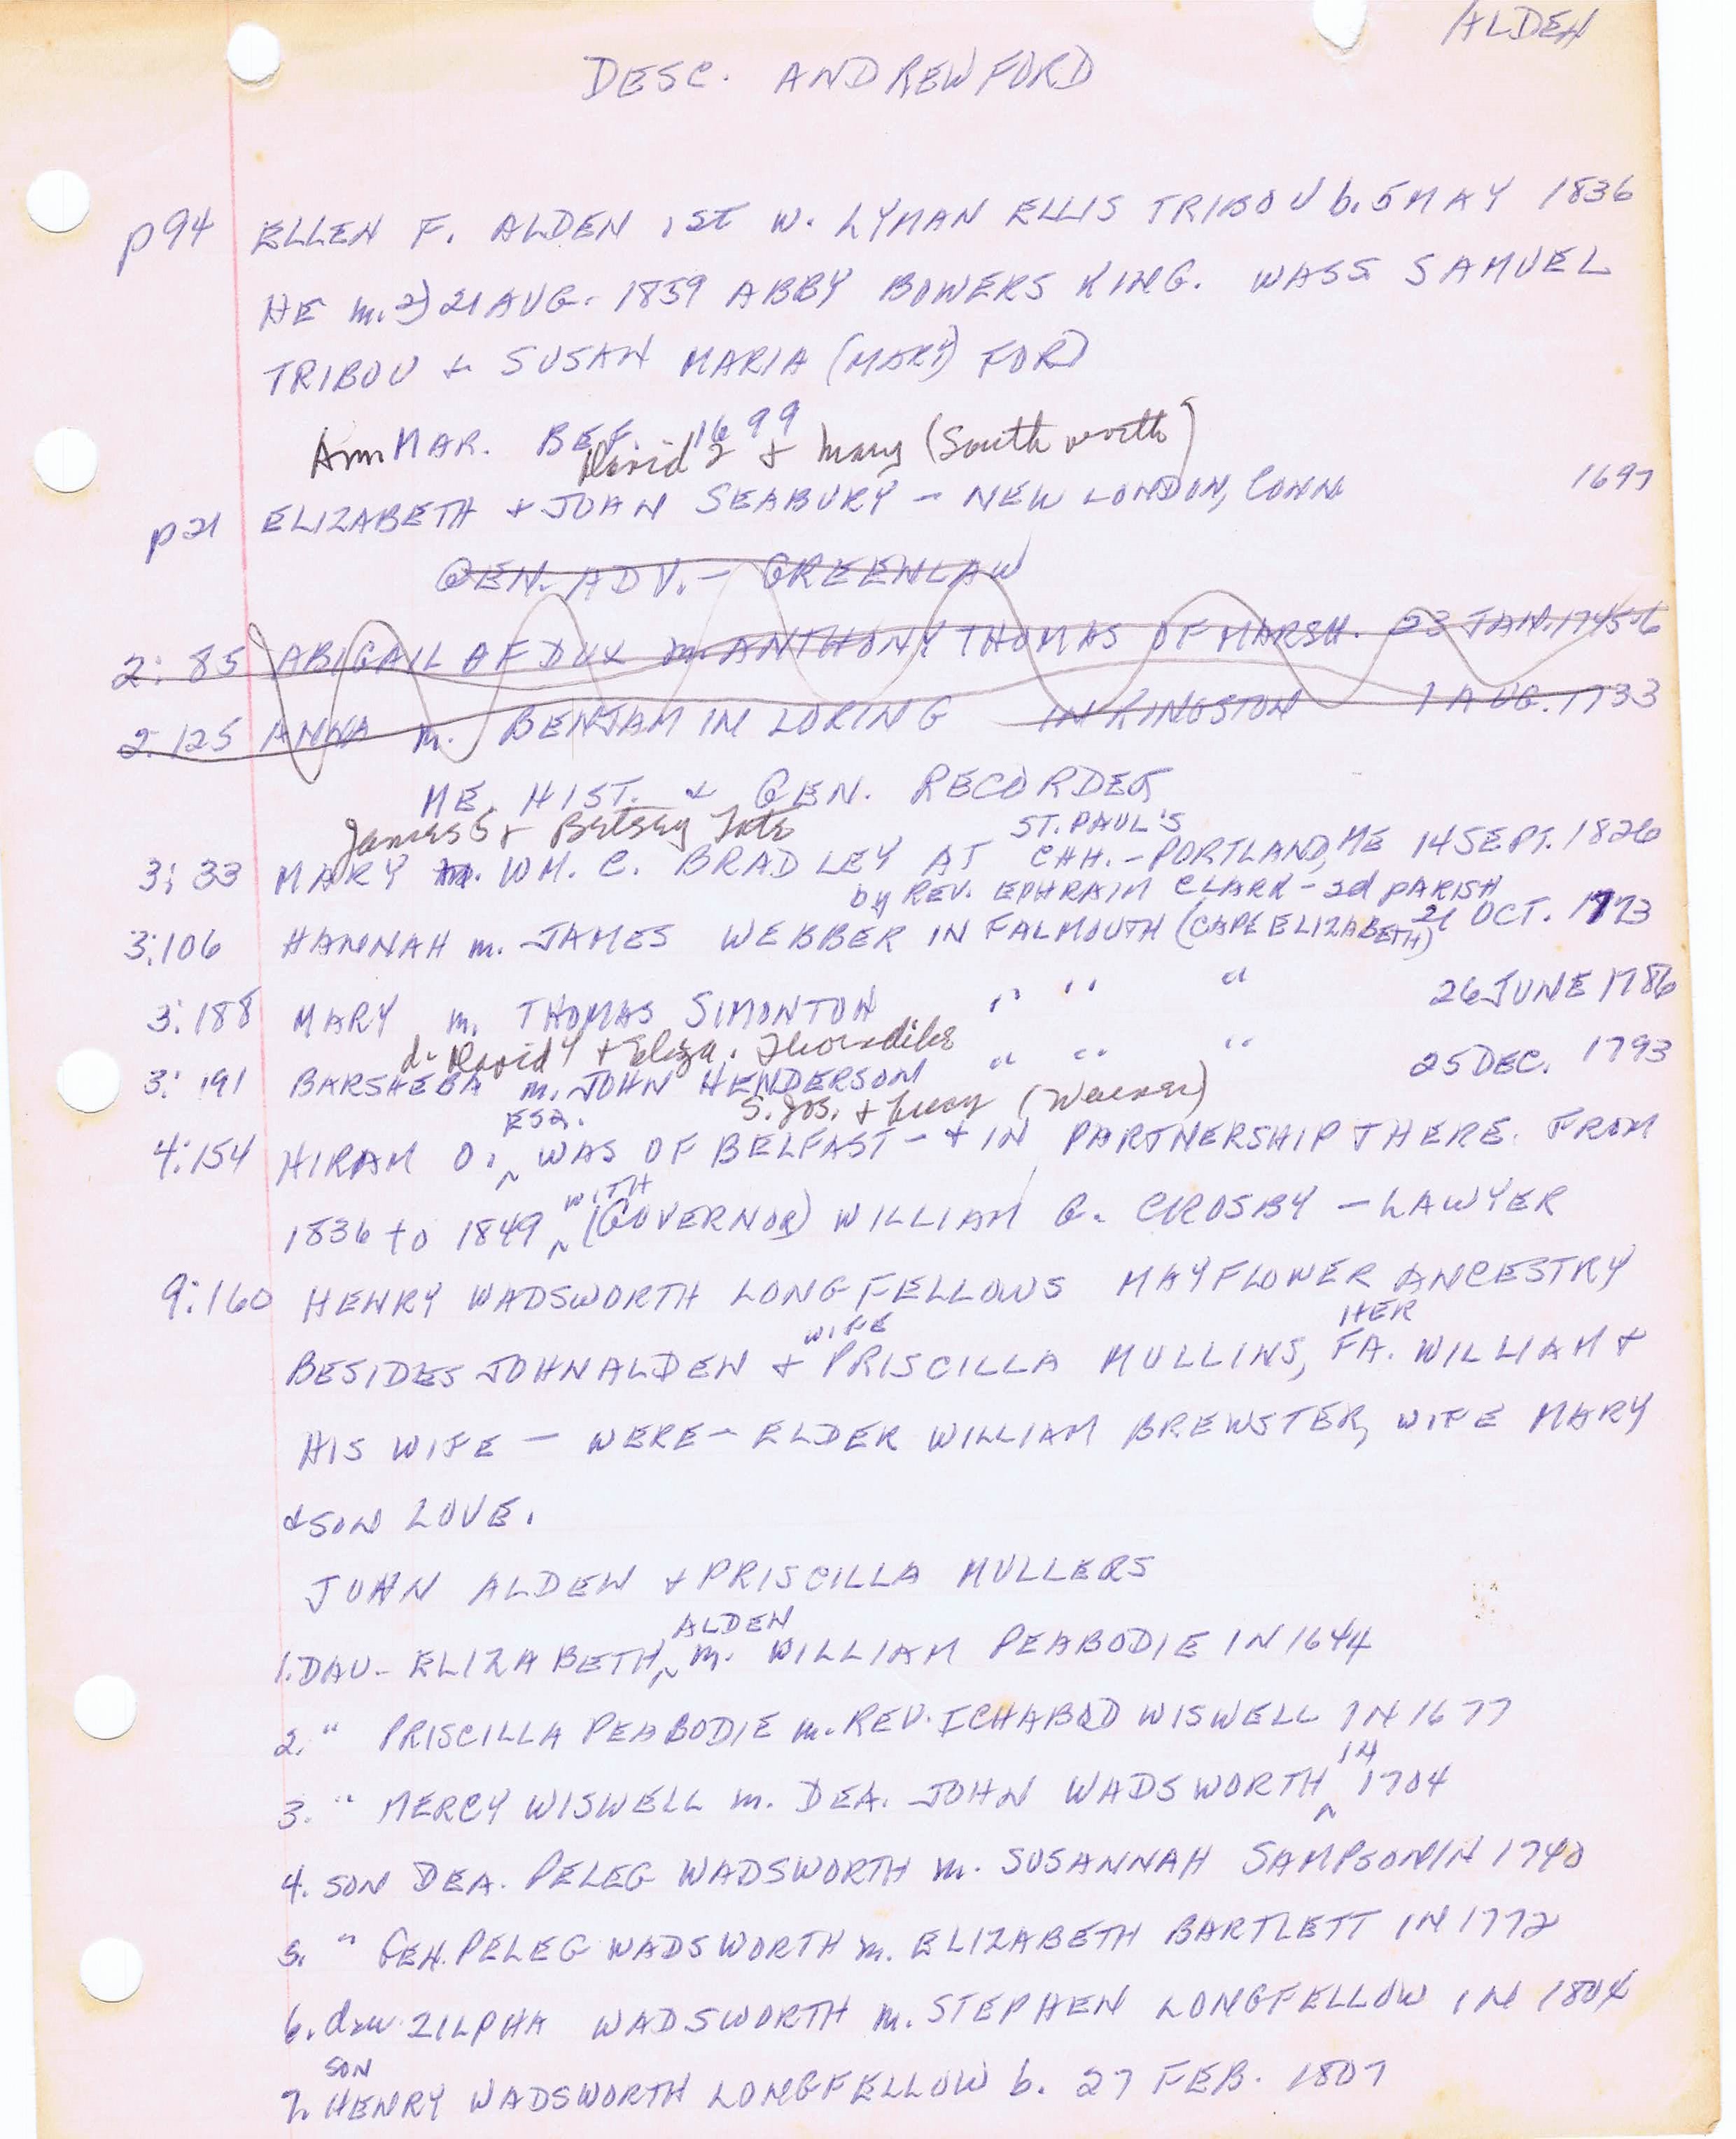 ALDEN
DESC. ANDREW FORD
p94 ELLEN F. ALDEN 1st W. LYMAN ELLIS TRIBOU b. 5 MAY 1836
HE m. 2) 21 AUG. 1859 ABBY BOWERS KING. WAS S SAMUEL
TRIBOU & SUSAN MARIA (MARY) FORD
Ann MAR. BEF. 1699
David 2 & Mary (Southworth)
p21 ELIZABETH & JOHN SEABURY - NEW LONDON, CONN 1697
GEN. ADV. - GREENLAW
2:85 ABIGAIL OF DUX m. ANTHONY THOMAS OF MARSH. 23 JAN. 1745-6
2:125 ANNA m. BENJAMIN LORING IN KINGSTON 1 AUG. 1733
ME. HIST. & GEN. RECORDER
James 5 & Betsey Tate
ST. PAUL'S
3:33 MARY m. WM. C. BRADLEY AT CHH. - PORTLAND, ME 14 SEPT. 1826
by REV. EPHRAIM CLARK - 2d PARISH
3:106 HANNAH m. JAMES WEBBER IN FALMOUTH (CAPE ELIZABETH) 21 OCT. 1773
3:188 MARY m. THOMAS SIMONTON " " " 26 JUNE 1786
d. David 4 & Eliza. Thorndike
3:191 BARSHEBA m. JOHN HENDERSON " " " 25 DEC. 1793
ESQ. S. Jos. & Lucy
4:154 HIRAM O. ^ WAS OF BELFAST - & IN PARTNERSHIP THERE. FROM
WITH
1836 to 1849 ^ (GOVERNOR) WILLIAM G. CROSBY - LAWYER
9:160 HENRY WADSWORTH LONGFELLOWS MAYFLOWER ANCESTRY
WIFE HER
BESIDES JOHN ALDEN & PRISCILLA MULLINS, FA. WILLIAM &
HIS WIFE - WERE - ELDER WILLIAM BREWSTER, WIFE MARY
& SON LOVE.
JOHN ALDEN & PRISCILLA MULLERS
ALDEN
1. DAU- ELIZABETH ^ m. WILLIAM PEABODIE IN 1644
2. " PRISCILLA PEABODIE m. REV. ICHABOD WISWELL IN 1677
IN
3. " MERCY WISWELL m. DEA. JOHN WADSWORTH ^ 1704
4. SON DEA. PELEG WADSWORTH m. SUSANNAH SAMPSON IN 1740
5. " GEN. PELEG WADSWORTH m. ELIZABETH BARTLETT IN 1772
6. dau. ZILPHA WADSWORTH m. STEPHEN LONGFELLOW IN 1804
SON
7. HENRY WADSWORTH LONGFELLOW b. 27 FEB. 1807